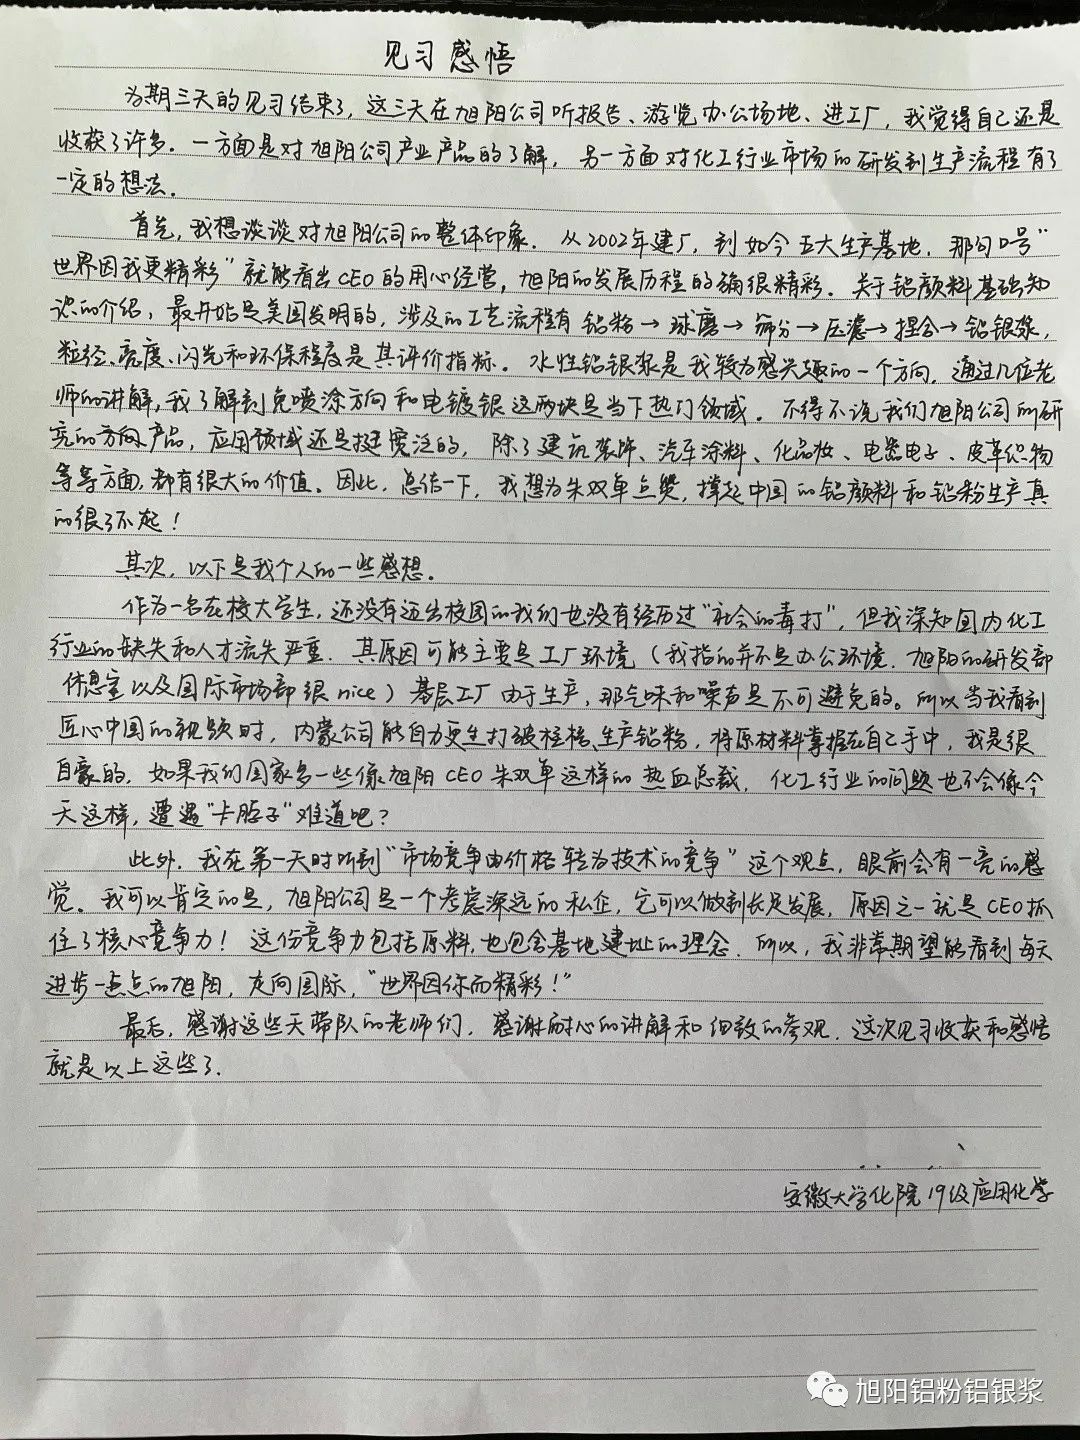 见习感悟
为期三天的见习结束了，这三天在旭阳公司听报告、游览办公场地、进工厂，我觉得自己还是
收获了许多。一方面是对旭阳公司产业产品的了解，另一方面对化工行业市场的研发到生产流程有了
一定的想法。
首先，我想谈谈对旭阳公司的整体印象。从2002年建厂，到如今五大生产基地，那句口号“
世界因我更精彩”就能看出CEO的用心经营，旭阳的发展历程的确很精彩。关于铝颜料基础知
识的介绍，最开始是美国发明的，涉及的工艺流程有铝粉→球磨→筛分→压滤→捏合→铝银浆，
粒径、亮度、闪光和环保程度是其评价指标。水性铝银浆是我较为感兴趣的一个方向，通过几位老
师的讲解，我了解到免喷涂方向和电镀银这两块是当下热门领域。不得不说我们旭阳公司的研
究的方向产品，应用领域还是挺宽泛的，除了建筑装饰、汽车涂料、化品妆、电器电子、皮革织物
等等方面，都有很大的价值。因此，总结一下，我想为朱双单点赞，撑起中国的铝颜料和铝粉生产真
的很了不起！
其次，以下是我个人的一些感想。
作为一名在校大学生，还没有迈出校园的我们也没有经历过“社会的毒打”，但我深知国内化工
行业的缺失和人才流失严重，其原因可能主要是工厂环境（我指的并不是办公环境，旭阳的研发部
休息室以及国际市场部很nice）基层工厂由于生产，那气味和噪声是不可避免的。所以当我看到
匠心中国的视频时，内蒙公司能自力更生打破桎梏、生产铝粉，将原材料掌握在自己手中，我是很
自豪的，如果我们国家多一些像旭阳CEO朱双单这样的热血总裁，化工行业的问题也不会像今
天这样，遭遇“卡脖子”难道吧？
此外，我在第一天时听到“市场竞争由价格转为技术的竞争”这个观点，眼前会有一亮的感
觉。我可以肯定的是，旭阳公司是一个考虑深远的私企，它可以做到长足发展，原因之一就是CEO抓
住了核心竞争力！这份竞争力包括原料，也包含基地建址的理念。所以，我非常期望能看到每天
进步一点点的旭阳，走向国际，“世界因你而精彩！”
最后，感谢这些天带队的老师们，感谢耐心的讲解和细致的参观，这次见习收获和感悟
就是以上这些了。
安徽大学化院19级应用化学
旭阳铝粉铝银浆